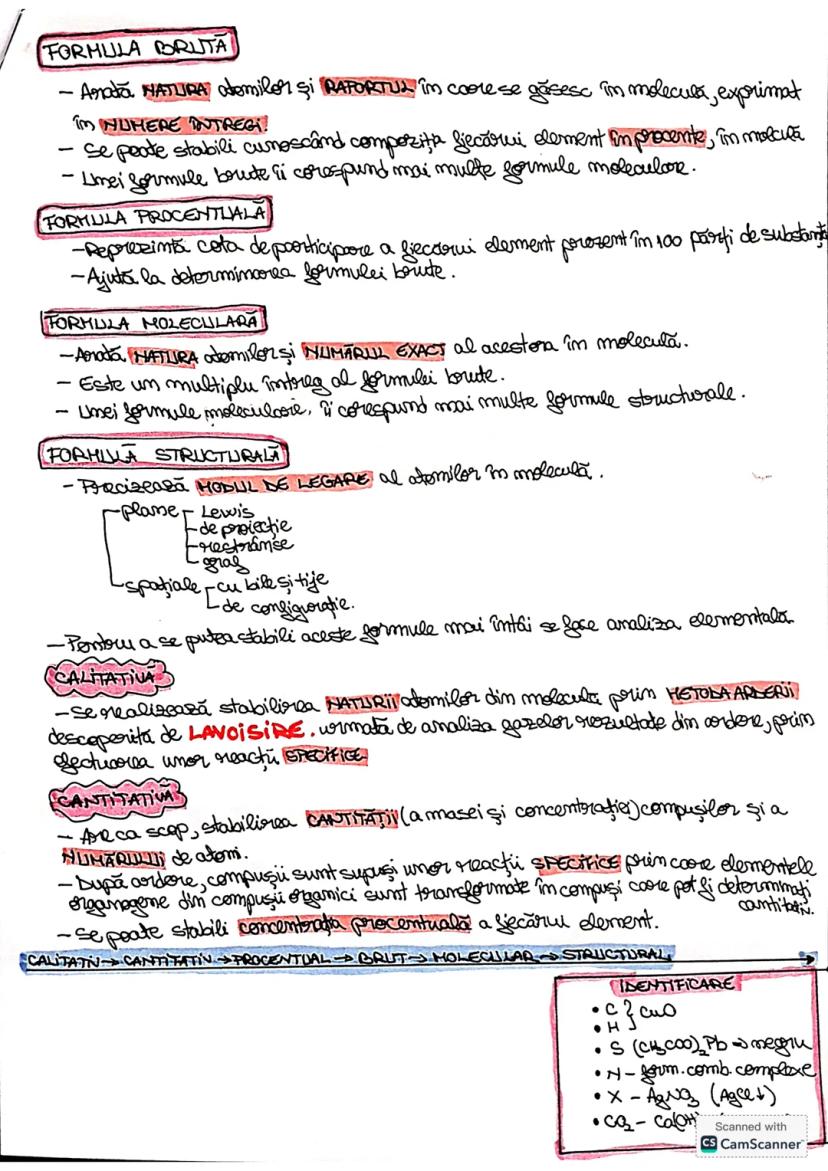 FORMULA BRUTĂ
- Arată NATURA atomilor și RAPORTUL în care se găsesc în moleculă, exprimat
în NUMERE ÎNTREGI!
- Se poate stabili cunoscând compoziția fiecărui element în procente, în molculă
- Unei formule brute îi corespund mai multe formule moleculare.
FORMULA PROCENTUALĂ
- Reprezintă cota de participare a fiecărui element prezent în 100 părți de substanță
- Ajută la determinarea formulei brute.
FORMULA MOLECULARĂ
- Arată NATURA atomilor și NUMĂRUL EXACT al acestora în moleculă.
- Este un multiplu întreg al formulei brute.
- Unei formule moleculare, îi corespund mai multe formule structurale.
FORMULĂ STRUCTURALĂ
- Precizează MODUL DE LEGARE al atomilor în moleculă.
plane Lewis
de proiecție
restrânse
graf
spațiale cu bile și tije
de configurație.
- Pentru a se putea stabili aceste formule mai întâi se face analiza elementală
CALITATIVĂ
- Se realizează stabilirea NATURII atomilor din moleculă prin METODA ARDERII
descoperită de LAVOISIRE. urmată de analiza gazelor rezultate din ardere, prin
efectuarea unor reacții SPECIFICE
CANTITATIVĂ
- Are ca scop, stabilirea CANTITĂȚII (a masei și concentrației) compușilor și a
NUMĂRULUI de atomi.
- După ardere, compușii sunt supuși unor reacții SPECIFICE prin care elementele
organogene din compușii organici sunt transformate în compuși care pot fi determinați
cantitativ.
- Se poate stabili concentrația procentuală a fiecărui element.
CALITATIV → CANTITATIV → PROCENTUAL → BRUT → MOLECULAR → STRUCTURAL
IDENTIFICARE
• C } CuO
• H
• S (CH₃COO)₂Pb → negru
• N - form. comb. complexe
• X - AgNO₃ (AgCl↓)
• CO₂ - Ca(OH
Scanned with
CS CamScanner